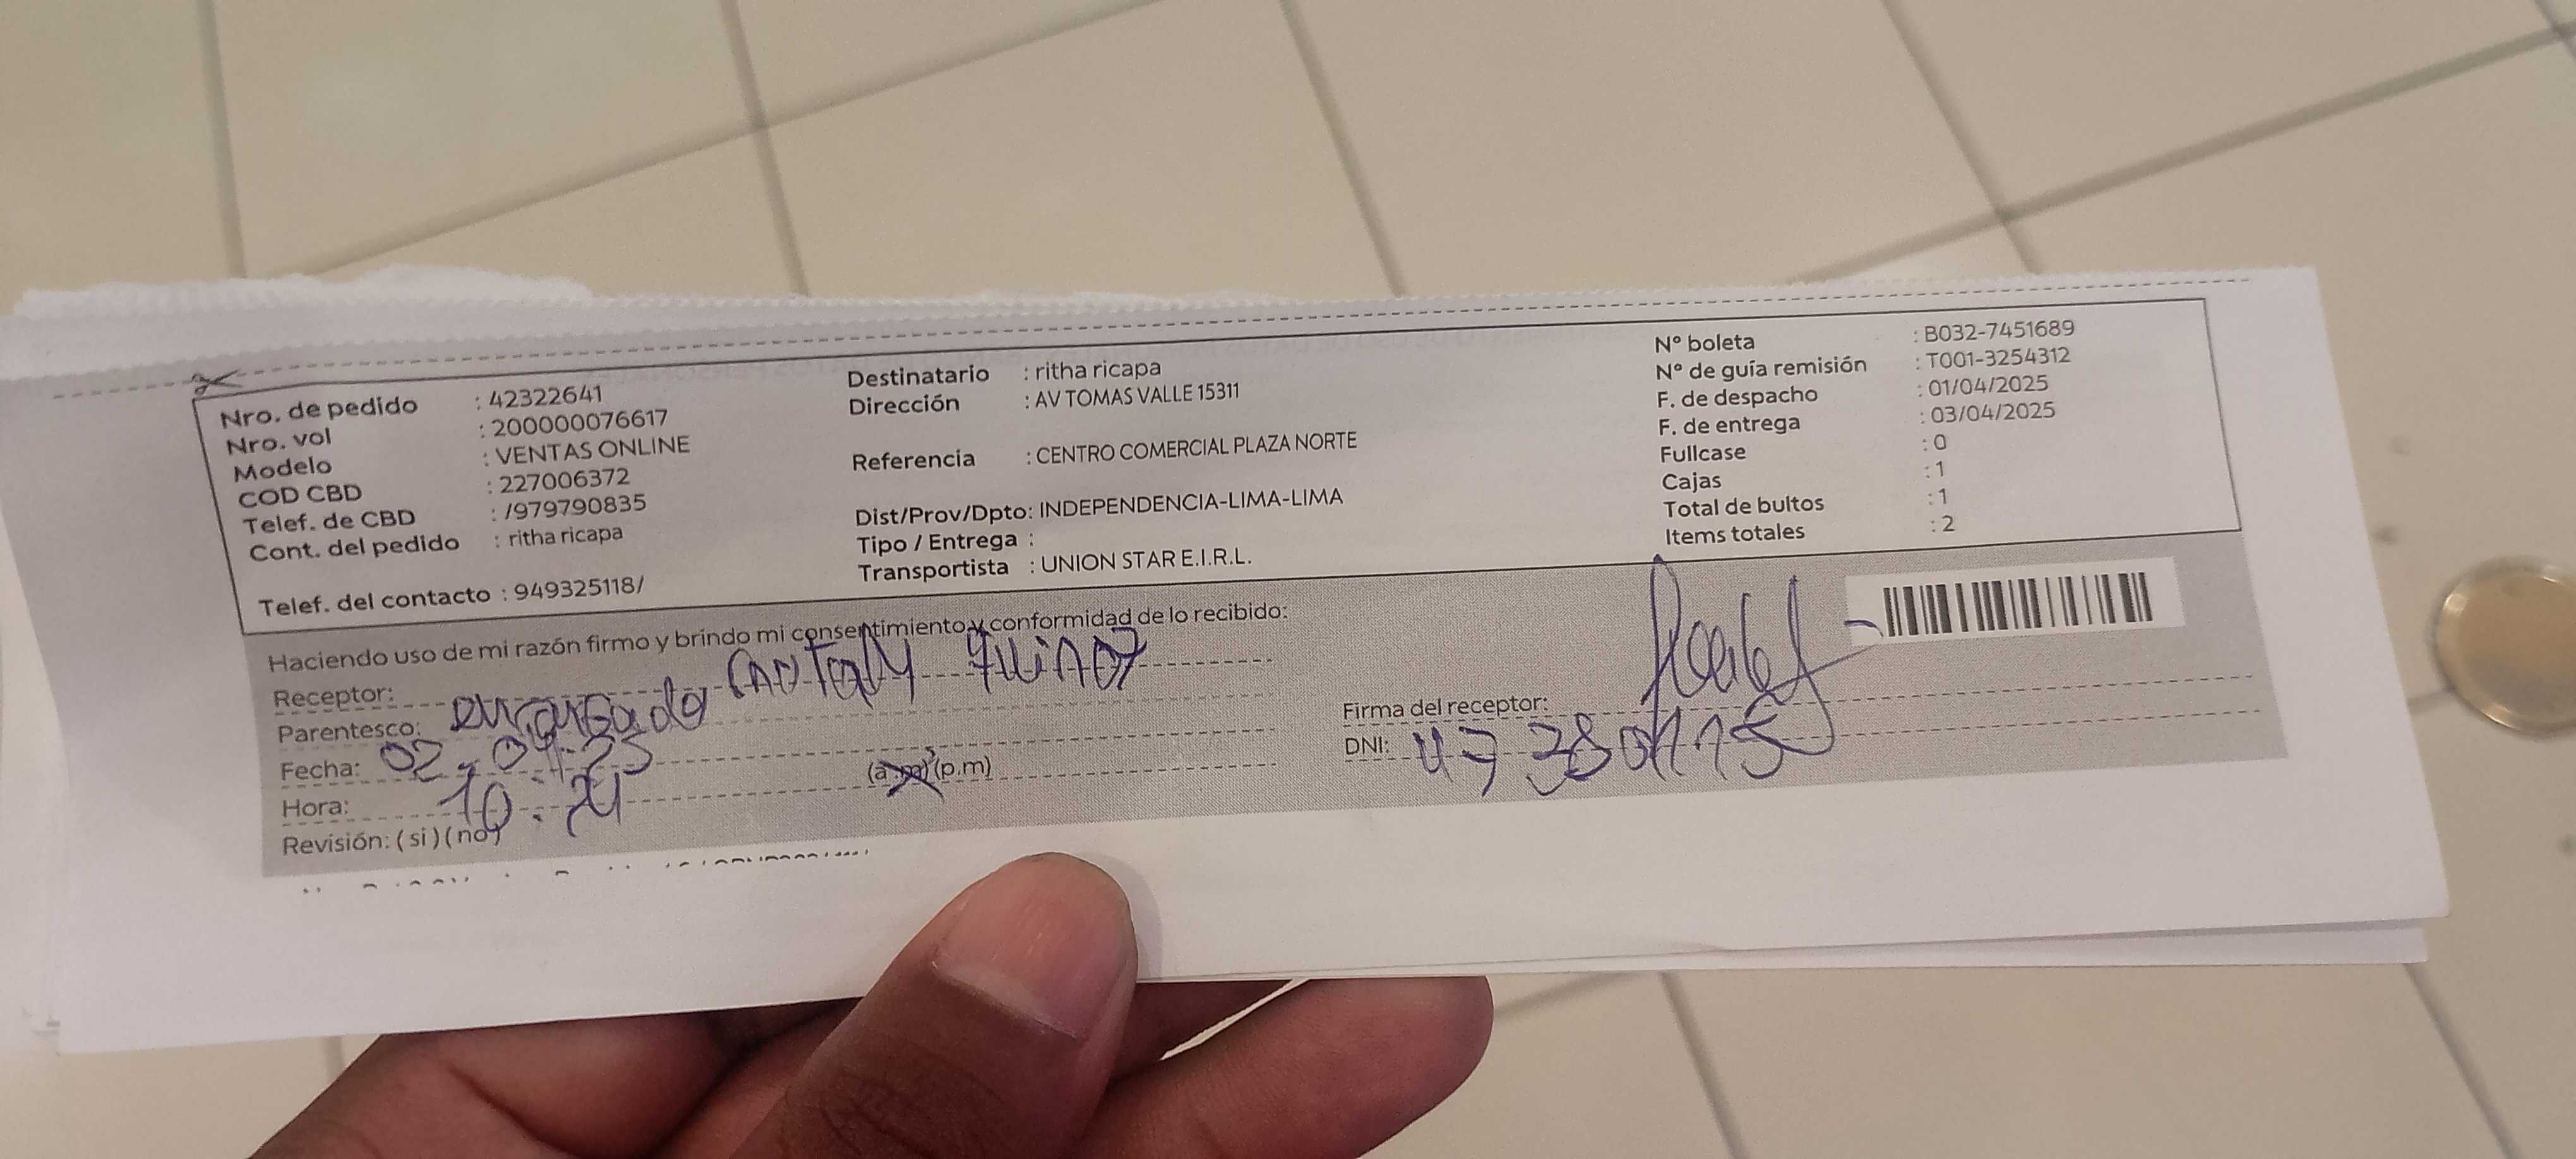 Nro. de pedido : 42322641
Nro. vol : 200000076617
Modelo : VENTAS ONLINE
COD CBD : 227006372
Telef. de CBD : /979790835
Cont. del pedido : ritha ricapa
Telef. del contacto : 949325118/
Destinatario : ritha ricapa
Dirección : AV TOMAS VALLE 15311
Referencia : CENTRO COMERCIAL PLAZA NORTE
Dist/Prov/Dpto: INDEPENDENCIA-LIMA-LIMA
Tipo / Entrega :
Transportista : UNION STAR E.I.R.L.
Nº boleta : B032-7451689
Nº de guía remisión : T001-3254312
F. de despacho : 01/04/2025
F. de entrega : 03/04/2025
Fullcase : 0
Cajas : 1
Total de bultos : 1
Items totales : 2
Haciendo uso de mi razón firmo y brindo mi consentimiento y conformidad de lo recibido:
Receptor:
Parentesco: encargado
Fecha: 02.04.25
Hora: 10:21 (a.m) (p.m)
Revisión: ( si ) ( no )
Firma del receptor:
DNI: